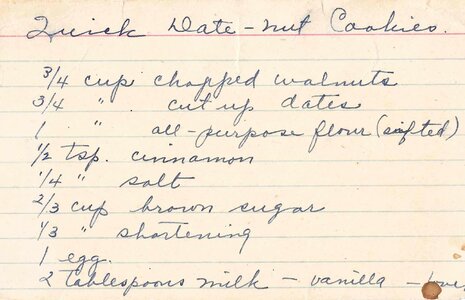 Quick Date-nut Cookies.
3/4 cup chopped walnuts
3/4 " . cut up dates
1 " all-purpose flour (sifted)
1/2 tsp. cinnamon
1/4 " salt
2/3 cup brown sugar
1/3 " shortening
1 egg.
2 tablespoons milk - vanilla - over